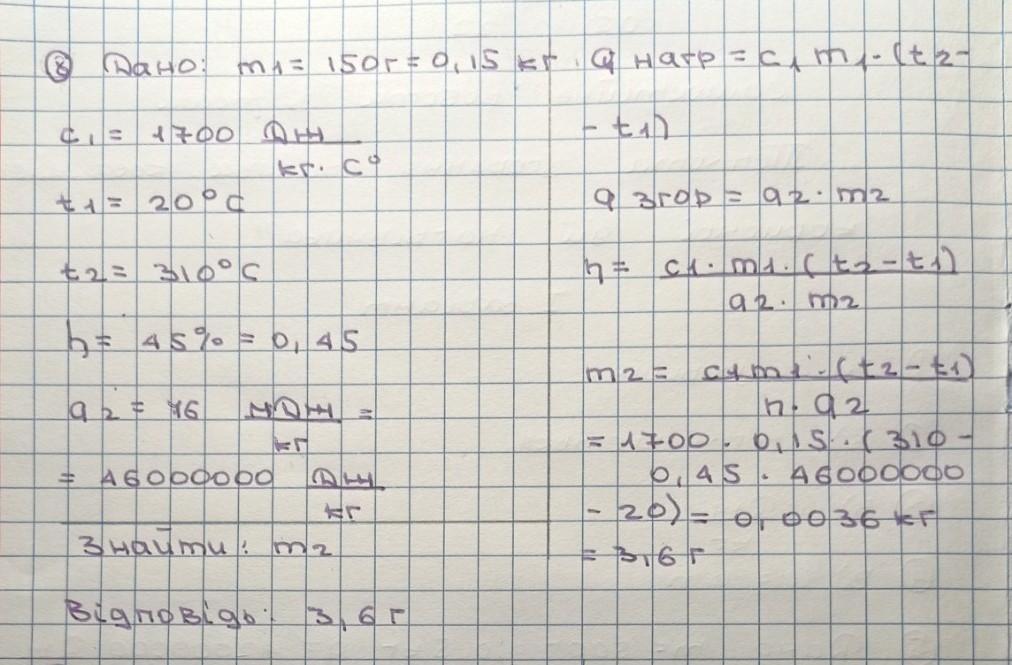 ⑧ Дано: m1 = 150г = 0,15 кг.
c1 = 1700 Дж
кг · C°
t1 = 20°C
t2 = 310°C
η = 45% = 0,45
q2 = 46 мДж =
кг
= 46000000 Дж
кг
Знайти: m2
Q нагр = c1 m1 · (t2 -
- t1)
Q згор = q2 · m2
η = c1 · m1 · (t2 - t1)
q2 · m2
m2 = c1 m1 · (t2 - t1)
η · q2
= 1700 · 0,15 · (310 -
0,45 · 46000000
- 20) = 0,0036 кг
= 3,6 г
Відповідь: 3,6 г